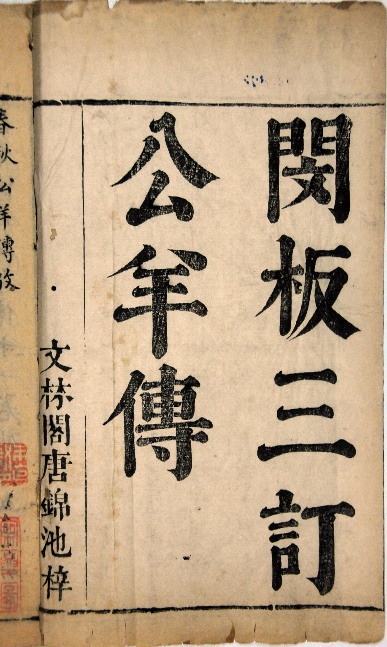 閔板三訂
公羊傳
文林閣唐錦池梓
春秋公羊傳